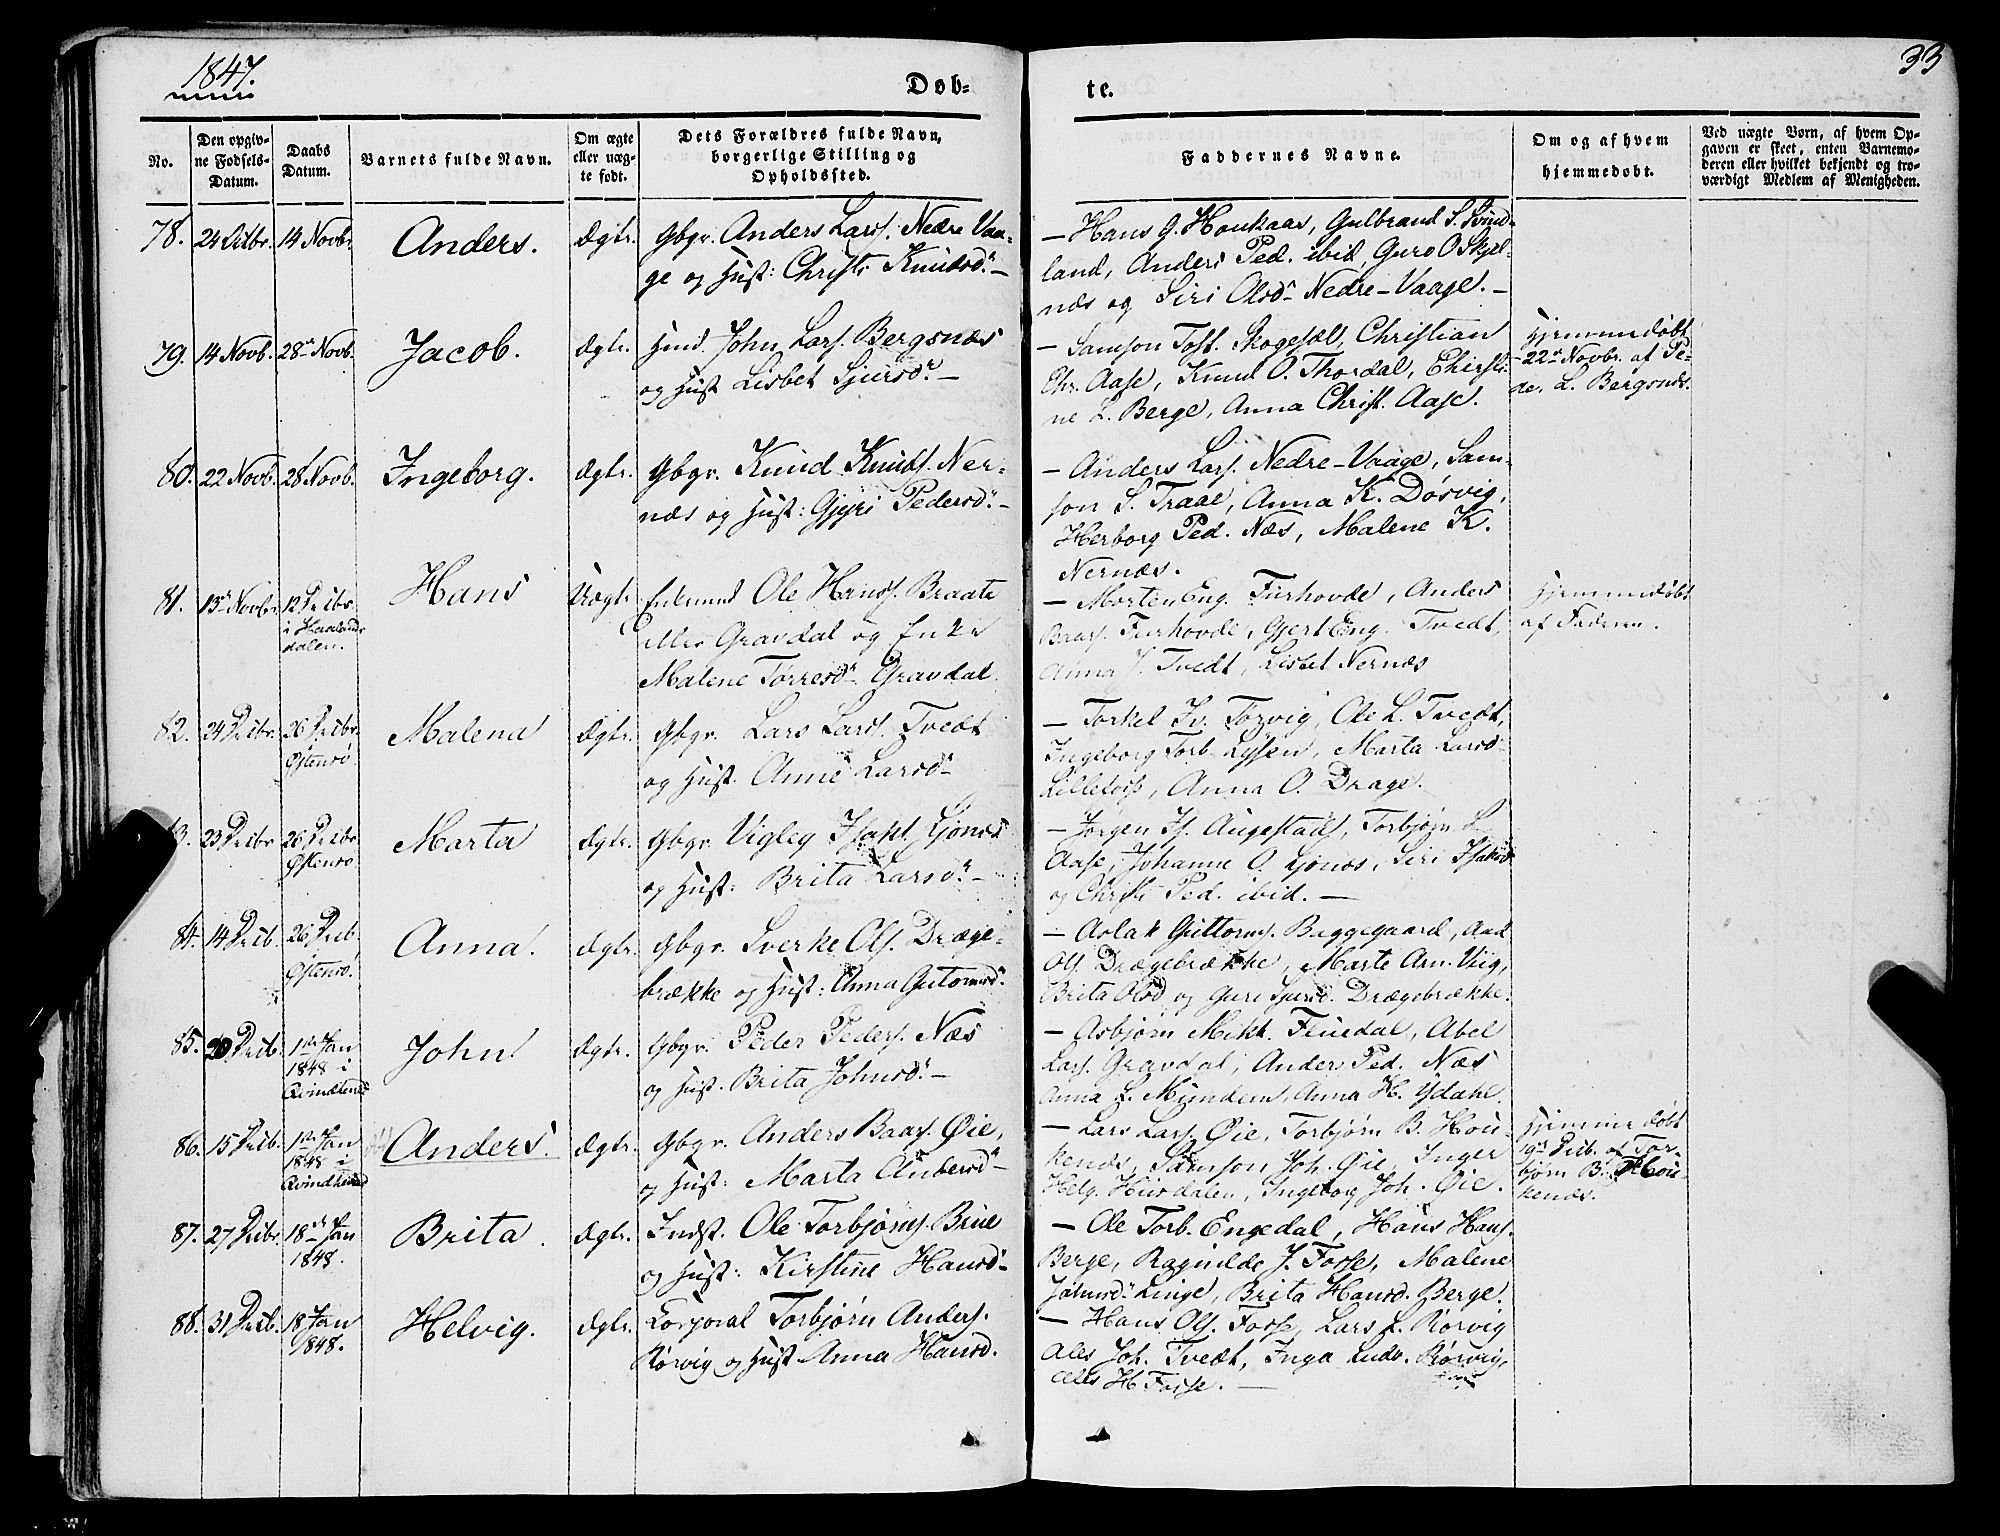 1847.
33
Døb-
te.
No.
Den opgiv-
ne Fødsels-
Datum.
Daabs
Datum.
Barnets fulde Navn.
Om ægte
eller uæg-
te født.
Dets Forældres fulde Navn,
borgerlige Stilling og
Opholdssted.
Faddernes Navne.
Om og af hvem
hjemmedøbt.
Ved uægte Børn, af hvem Op-
gaven er skeet, enten Barnemo-
deren eller hvilket bekjendt og tro-
værdigt Medlem af Menigheden.
78. 24 Octbr. 14 Novbr. Anders. Ægte. Gbgr. Anders Lars. Nedre Vaa-
ge og Hust: Christi Knudsd. —
— Hans G. Houkaas, Gulbrand S. Svind-
land, Anders Ped. ibid, Guro O Skjel-
næs og Siri Olsd Nedre-Vaage. —
79. 14 Novb. 28 Novb. Jacob. Ægte. Huusm. John Lars. Bergsnæs
og Hust Lisbet Sjursd. —
— Samson Tost. Skogesæl, Christian
Chr. Aase, Knud O. Thordal, Christi-
ne L. Berge, Anna Christ. Aase.
Hjemmedøbt
22 Novbr. af Pe-
der L. Bergsnæs.
80. 22 Novb. 28 Novb. Ingeborg. Ægte. Gbgr. Knud Knuds. Ner-
næs og Hust: Gjyri Pedersd. —
— Anders Lars. Nedre-Vaage, Sam-
son S. Traae, Anna K. Døsvig,
Herborg Ped. Næs, Malene K.
Nernæs.
81. 13 Novbr. 12 Decbr. Hans Uægte Enkemand Ole Hans. Braate
i Haalands
dalen.
eller Gravdal og Enke
Malene Torresd Gravdal.
— Morten Eng. Furhovde, Anders
Baars. Furhovde, Gjert Eng. Tvedt,
Anna J. Tvedt, Lisbet Nernæs
Hjemmedøbt
af Faderen.
82. 24 Decbr. 26 Decbr. Malena Ægte. Gbgr. Lars Lars. Tvedt
Østensø.
og Hust. Anne Larsd —
— Torkel Iv. Torvig, Ole L. Tvedt,
Ingeborg Torb. Lysen, Marta Larsd
Lilletvis, Anna O. Drage.
3. 23 Decbr 26 Decbr Marta Ægte. Gbgr. Vigleg Isaks. Gjønes
Østensø
og Hust: Brita Larsd. —
— Jørgen Is. Augestad, Torbjørn L
Aase, Johanne O. Gjønes, Siri Isaksd
og Christi Ped. ibid. —
84. 14 Decb. 26 Decb. Anna. Ægte. Gbgr. Sverke Ols. Dræge-
Østensø.
brække og Hust: Anna Gutormsd.
— Aslak Guttorms. Byggegaard, Aad
Ols. Drægebrække, Marte Arn. Viig,
Brita Olsd og Guri Sjursd. Drægebrække.
85. 20 Decb. 1ste Jan John Ægte. Gbgr. Peder Peders. Næs
1848 i
Qvindherred
og Hust. Brita Johnsd. —
— Asbjørn Mikk. Fluedal, Abel
Lars. Gravdal, Anders Ped. Næs
Anna L. Mundem, Anna H. Ydahl.
86. 15 Decb. 1ste Jan Anders. Ægte. Gbgr. Anders Baars. Øie,
1848 i
Qvindherred
og Hust: Marta Andersd —
— Lars Lars. Øie, Torbjørn B. Hou-
kenæs, Samson Joh. Øie, Inger
Helg. Huusdalen, Ingeborg Joh. Øie.
Hjemmedøbt
19de Decb. af Tor-
bjørn B. Hou-
kenæs.
87. 27 Decbr. 18de Jan Brita. Ægte. Indst. Ole Torbjørns. Brue
1848.
og Hust: Kirstine Hansd —
— Ole Torb. Engedal, Hans Hans.
Berge, Ragnilde J. Fosse, Malene
Johnsd. Linge, Brita Hansd. Berge.
88. 31 Decb. 18 Jan Helvig. Ægte. Corporal Torbjørn Anders.
1848.
Rørvig og Hust Anna Hansd.
— Hans Ols. Fosse, Lars L. Rørvig
Ales Joh. Tvedt, Inga Ludv. Rørvig,
Ales H Fosse. —